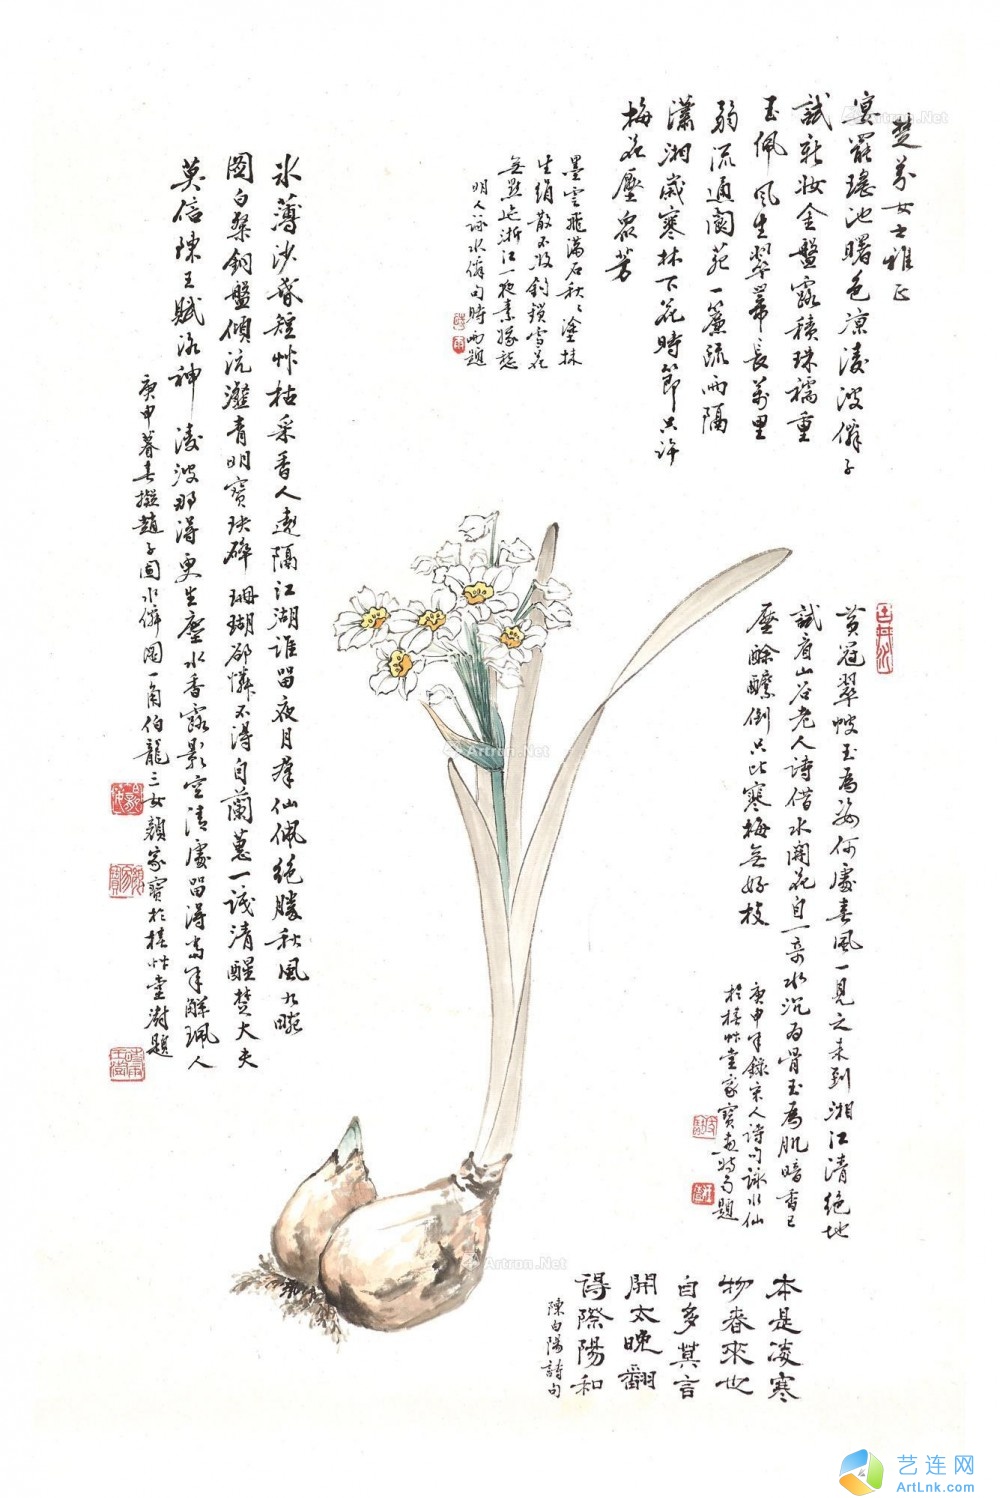 楚芬女士雅正
宴罷瑤池曙色涼凌波僊子
試新妝金盤露積珠襦重
玉佩風生翠帶長萬里
弱流通閬苑一簾疏雨隔
瀟湘歲寒林下花時節只許
梅花壓眾芳
墨雲飛滿石秋秋塗林
生絹散不收鈎鎖雪花
無點迹浙江一夜素
明人詠水僊句時雨題
冰薄沙昏短艸枯采香人遠隔江湖誰留夜月羣仙佩絕勝秋風九畹
圖白粲銅盤傾沆瀣青明寶玦碎珊瑚卻憐不得同蘭蕙一識清醒楚大夫
莫信陳王賦洛神凌波那得更生塵水香露影空清處留得當年解珮人
庚申暮春擬趙子固水僊圖一角伯龍三女顏家寶於椿艸堂謝題
黃冠翠帔玉為姿何處春風一見之未到湘江清絕地
試看山谷老人詩借水開花自一奇水沉為骨玉為肌暗香已
壓酴醾倒只比寒梅無好枝
庚申年錄宋人詩句詠水仙
於椿艸堂家寶畫時雨題
本是凌寒
物春來也
自多莫言
開太晚翻
得際陽和
陳白陽詩句
Artron.Net
Artron.Net
Artron.Net
艺连网
ArtLnk.com